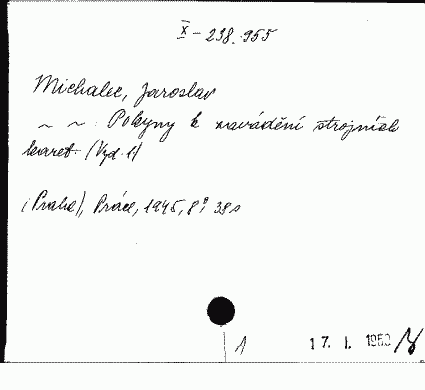 X - 238.955
Michalec, Jaroslav
~ ~ : Pokyny k zavádění strojních
karet. (Vyd. 1)
(Praha), Práce, 1945, 8° 38 s
1
17. I. 1950